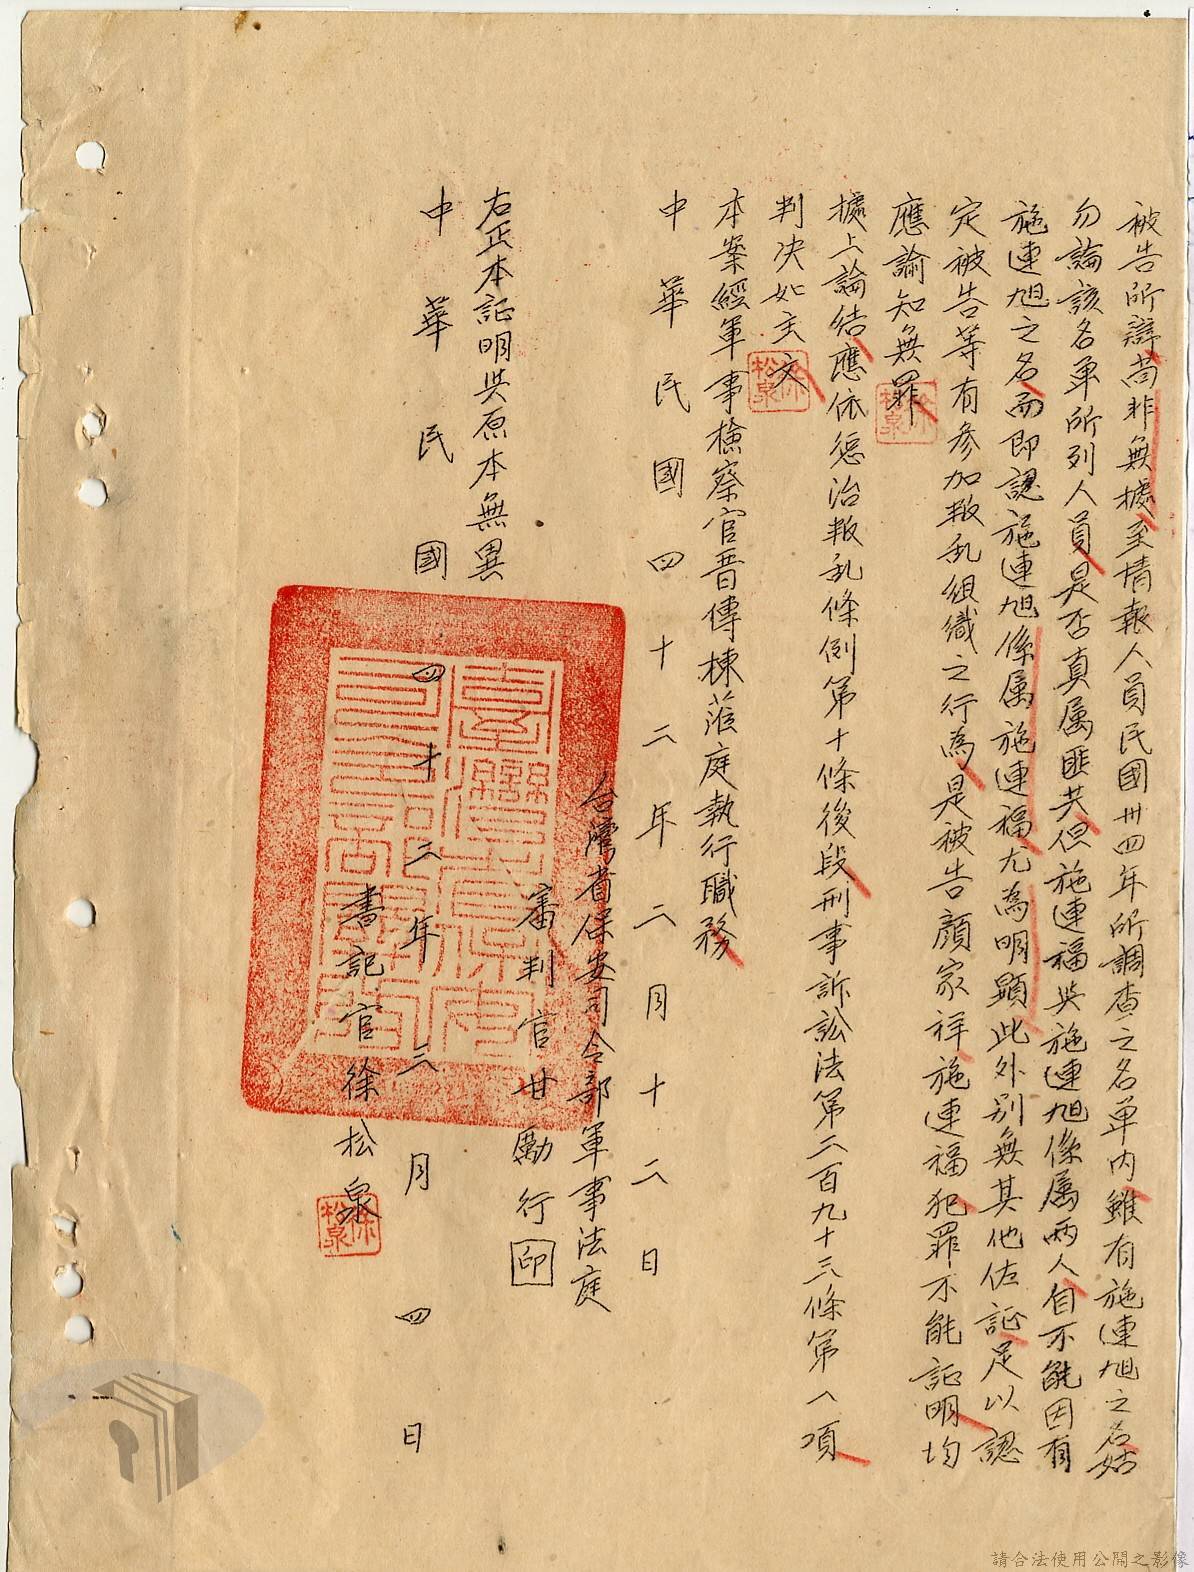 被告所辯尚非無據至情報人員民國卅四年所調查之名單內雖有施連旭之名姑
勿論該名單所列人員是否真属匪共但施連福與施連旭係属兩人自不能因有
施連旭之名而即認施連旭係属施連福尤為明顯此外別無其他佐証足以認
定被告等有參加叛乱組織之行為是被告顏家祥施連福犯罪不能証明均
應諭知無罪
據上論結應依惩治叛乱條例第十條後段刑事訴訟法第二百九十三條第一項
判决如主文
本案經軍事檢察官晋傳棟蒞庭執行職務
中華民國四十二年二月十二日
台灣省保安司令部軍事法庭
審判官甘勵行印
右正本証明與原本無異
中華民國四十二年三月四日
書記官徐松泉
徐松泉
徐松泉
徐松泉
請合法使用公開之影像